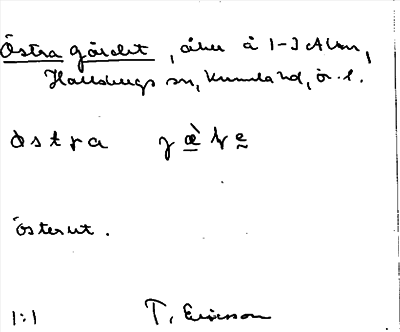 Östra gärdet, åker å 1-3 Alm,
Hallsbergs sn, Kumla hd, ör. l.
östra jæ̀ʈe
österut.
1:1 T. Ericsson